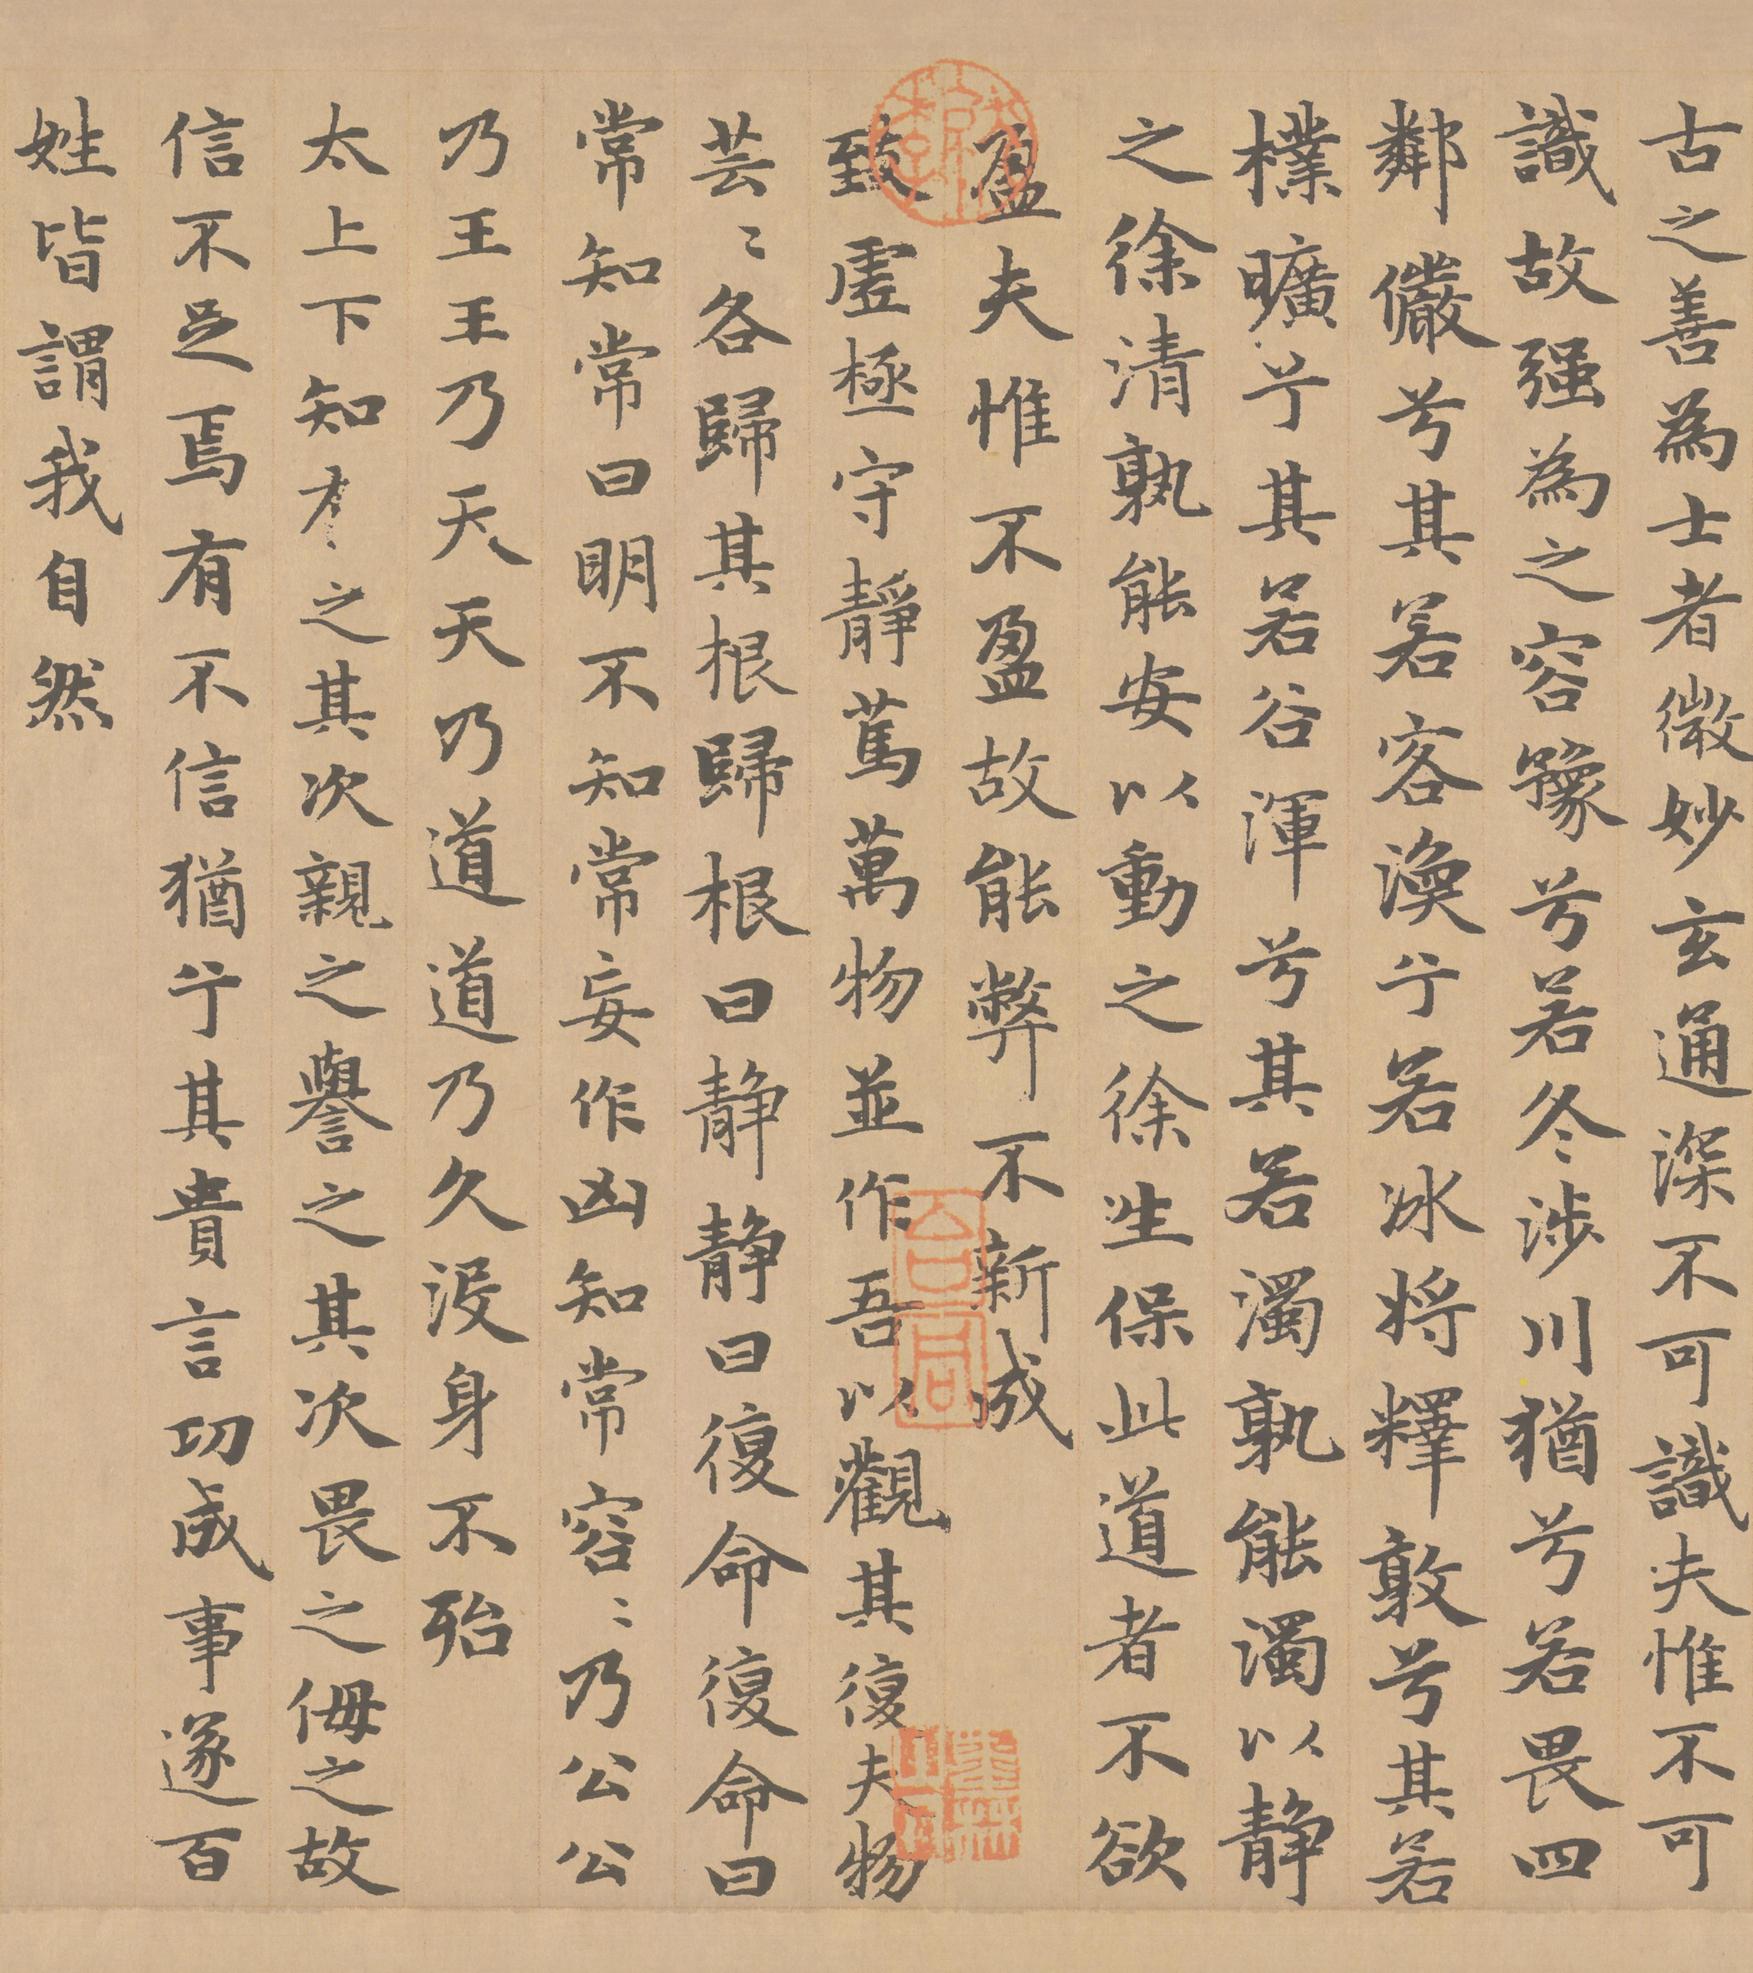 古之善為士者微妙玄通深不可識夫惟不可
識故强為之容豫兮若冬涉川猶兮若畏四
鄰儼兮其若客渙兮若冰將釋敦兮其若
樸曠兮其若谷渾兮其若濁孰能濁以静
之徐清孰能安以動之徐生保此道者不欲
盈夫惟不盈故能弊不新成
致虚極守靜篤萬物並作吾以觀其復夫物
芸〻各歸其根歸根曰静静曰復命復命曰
常知常曰明不知常妄作凶知常容〻乃公公
乃王王乃天天乃道道乃久没身不殆
太上下知有之其次親之譽之其次畏之侮之故
信不足焉有不信猶兮其貴言功成事遂百
姓皆謂我自然